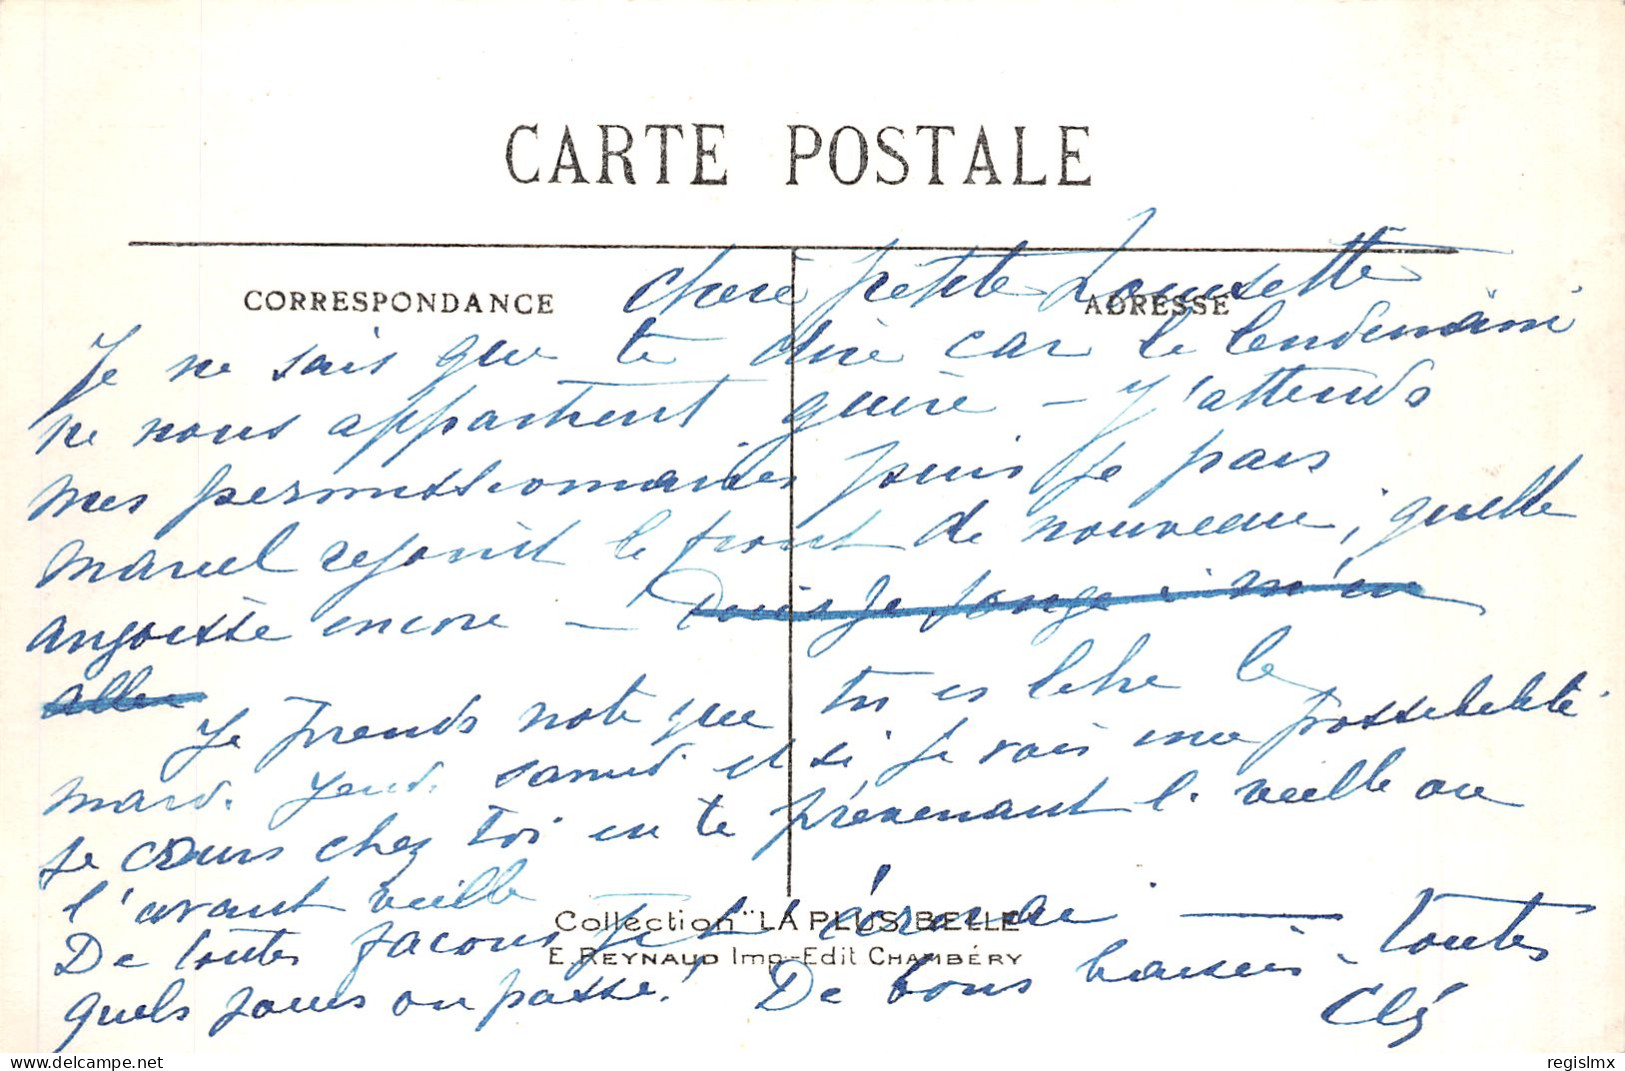 CARTE POSTALE
CORRESPONDANCE
ADRESSE
Chère petite Lousette
Je ne sais que te dire car le lendemain
ne nous appartient guère – J'attends
mes permissionnaires puis je pars
Marcel rejoint le front de nouveau, quelle
angoisse encore – Puis je songe m'en
aller
Je prends note que tu es libre le
mard. jeud. samedi et si je vois une possibilité
je cours chez toi en te prévenant la veille ou
l'avant veille
De toutes façons je t'écrirai — toutes
quels jours on passe! De bons baisers
Clé
Collection "LA PLUS BELLE"
E. REYNAUD Imp.-Edit CHAMBÉRY
regislmx
https://www.delcampe.net